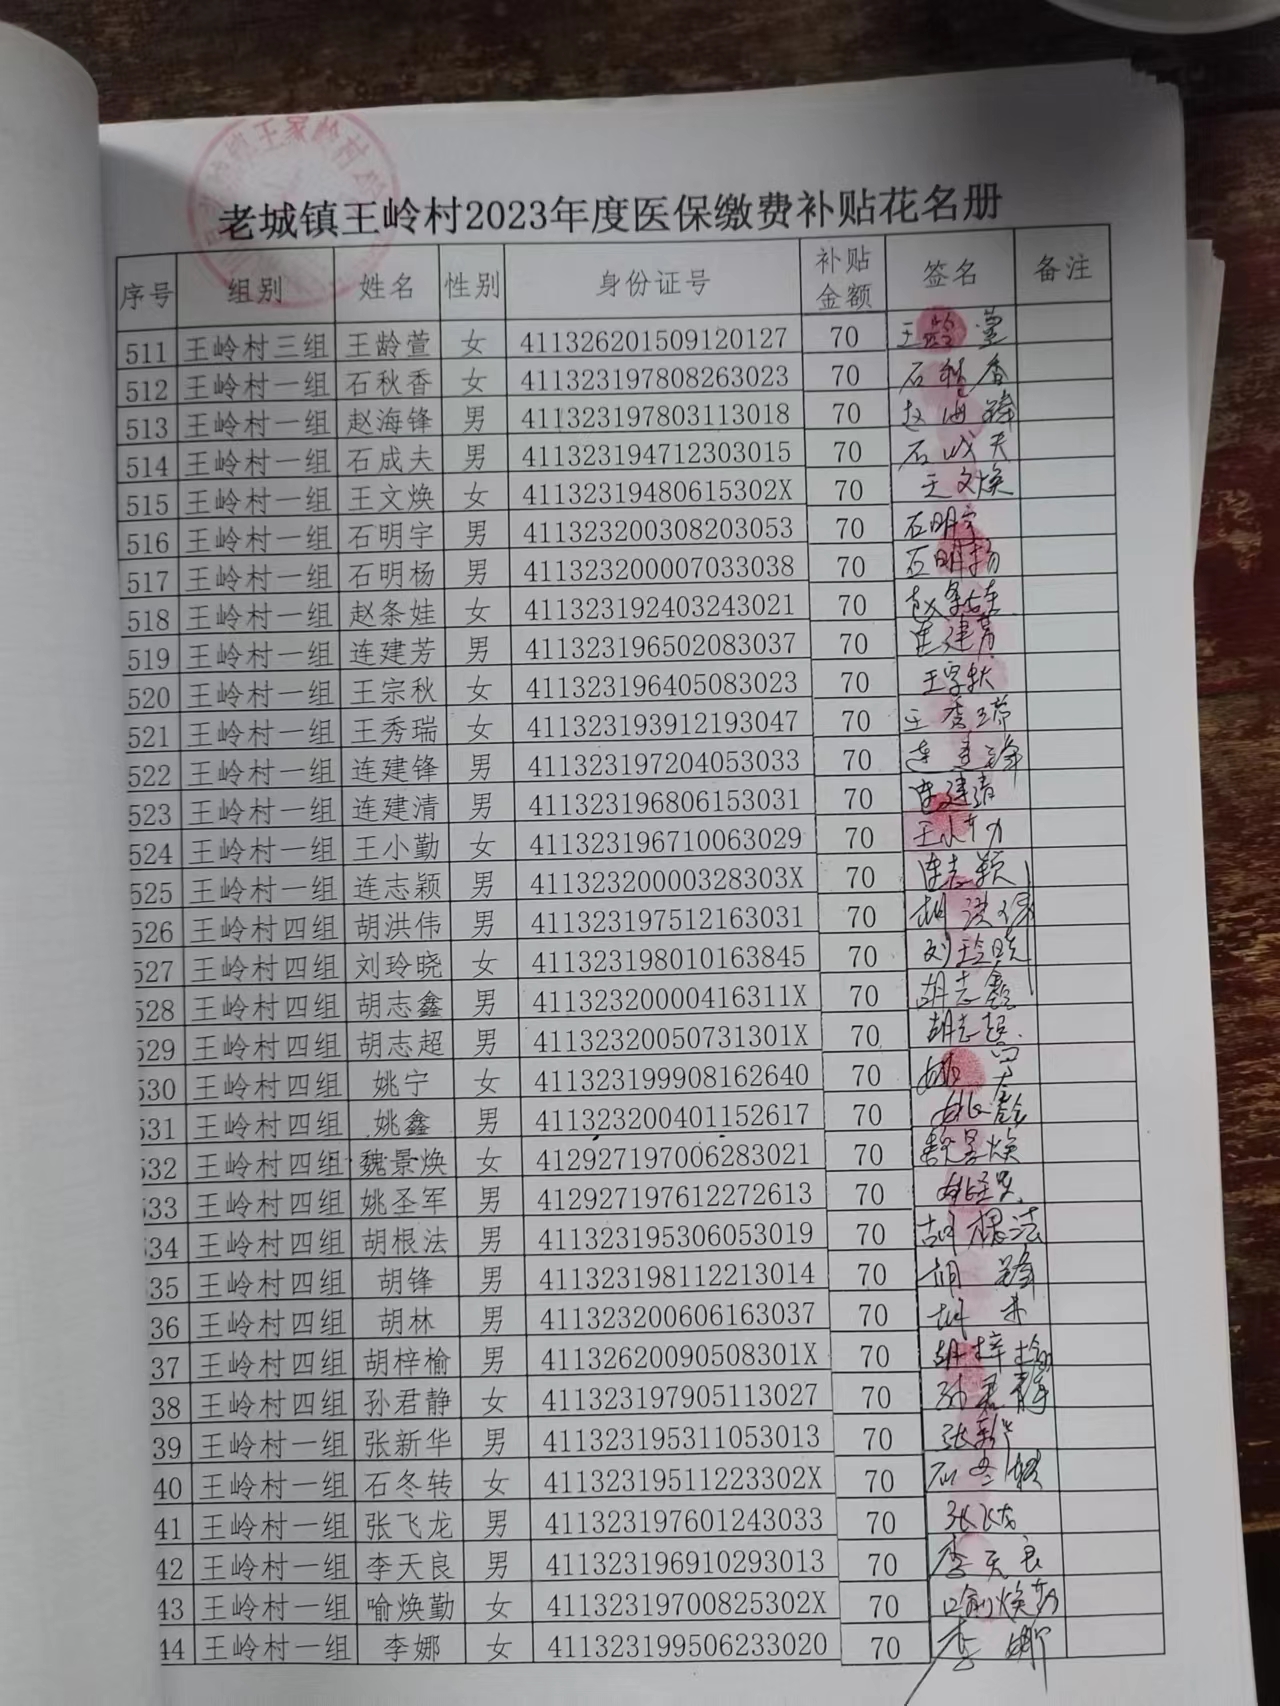 王家岭村
老城镇王岭村2023年度医保缴费补贴花名册
序号 组别 姓名 性别 身份证号 补贴金额 签名 备注
511 王岭村三组 王龄萱 女 411326201509120127 70 王龄萱
512 王岭村一组 石秋香 女 411323197808263023 70 石秋香
513 王岭村一组 赵海锋 男 411323197803113018 70 赵海锋
514 王岭村一组 石成夫 男 411323194712303015 70 石成夫
515 王岭村一组 王文焕 女 41132319480615302X 70 王文焕
516 王岭村一组 石明宇 男 411323200308203053 70 石明宇
517 王岭村一组 石明杨 男 411323200007033038 70 石明杨
518 王岭村一组 赵条娃 女 411323192403243021 70
519 王岭村一组 连建芳 男 411323196502083037 70 连建芳
520 王岭村一组 王宗秋 女 411323196405083023 70 王宗秋
521 王岭村一组 王秀瑞 女 411323193912193047 70 王秀瑞
522 王岭村一组 连建锋 男 411323197204053033 70 连建锋
523 王岭村一组 连建清 男 411323196806153031 70 连建清
524 王岭村一组 王小勤 女 411323196710063029 70 王小勤
525 王岭村一组 连志颖 男 41132320000328303X 70 连志颖
526 王岭村四组 胡洪伟 男 411323197512163031 70 胡洪伟
527 王岭村四组 刘玲晓 女 411323198010163845 70 刘玲晓
528 王岭村四组 胡志鑫 男 41132320000416311X 70 胡志鑫
529 王岭村四组 胡志超 男 41132320050731301X 70 胡志超
530 王岭村四组 姚宁 女 411323199908162640 70 姚宁
531 王岭村四组 姚鑫 男 411323200401152617 70 姚鑫
532 王岭村四组 魏景焕 女 412927197006283021 70 魏景焕
533 王岭村四组 姚圣军 男 412927197612272613 70 姚圣军
534 王岭村四组 胡根法 男 411323195306053019 70 胡根法
35 王岭村四组 胡锋 男 411323198112213014 70 胡锋
36 王岭村四组 胡林 男 411323200606163037 70 胡林
37 王岭村四组 胡梓榆 男 41132620090508301X 70 胡梓榆
38 王岭村四组 孙君静 女 411323197905113027 70 孙君静
39 王岭村一组 张新华 男 411323195311053013 70 张新华
40 王岭村一组 石冬转 女 41132319511223302X 70 石冬转
41 王岭村一组 张飞龙 男 411323197601243033 70 张飞龙
42 王岭村一组 李天良 男 411323196910293013 70 李天良
43 王岭村一组 喻焕勤 女 41132319700825302X 70 喻焕勤
44 王岭村一组 李娜 女 411323199506233020 70 李娜